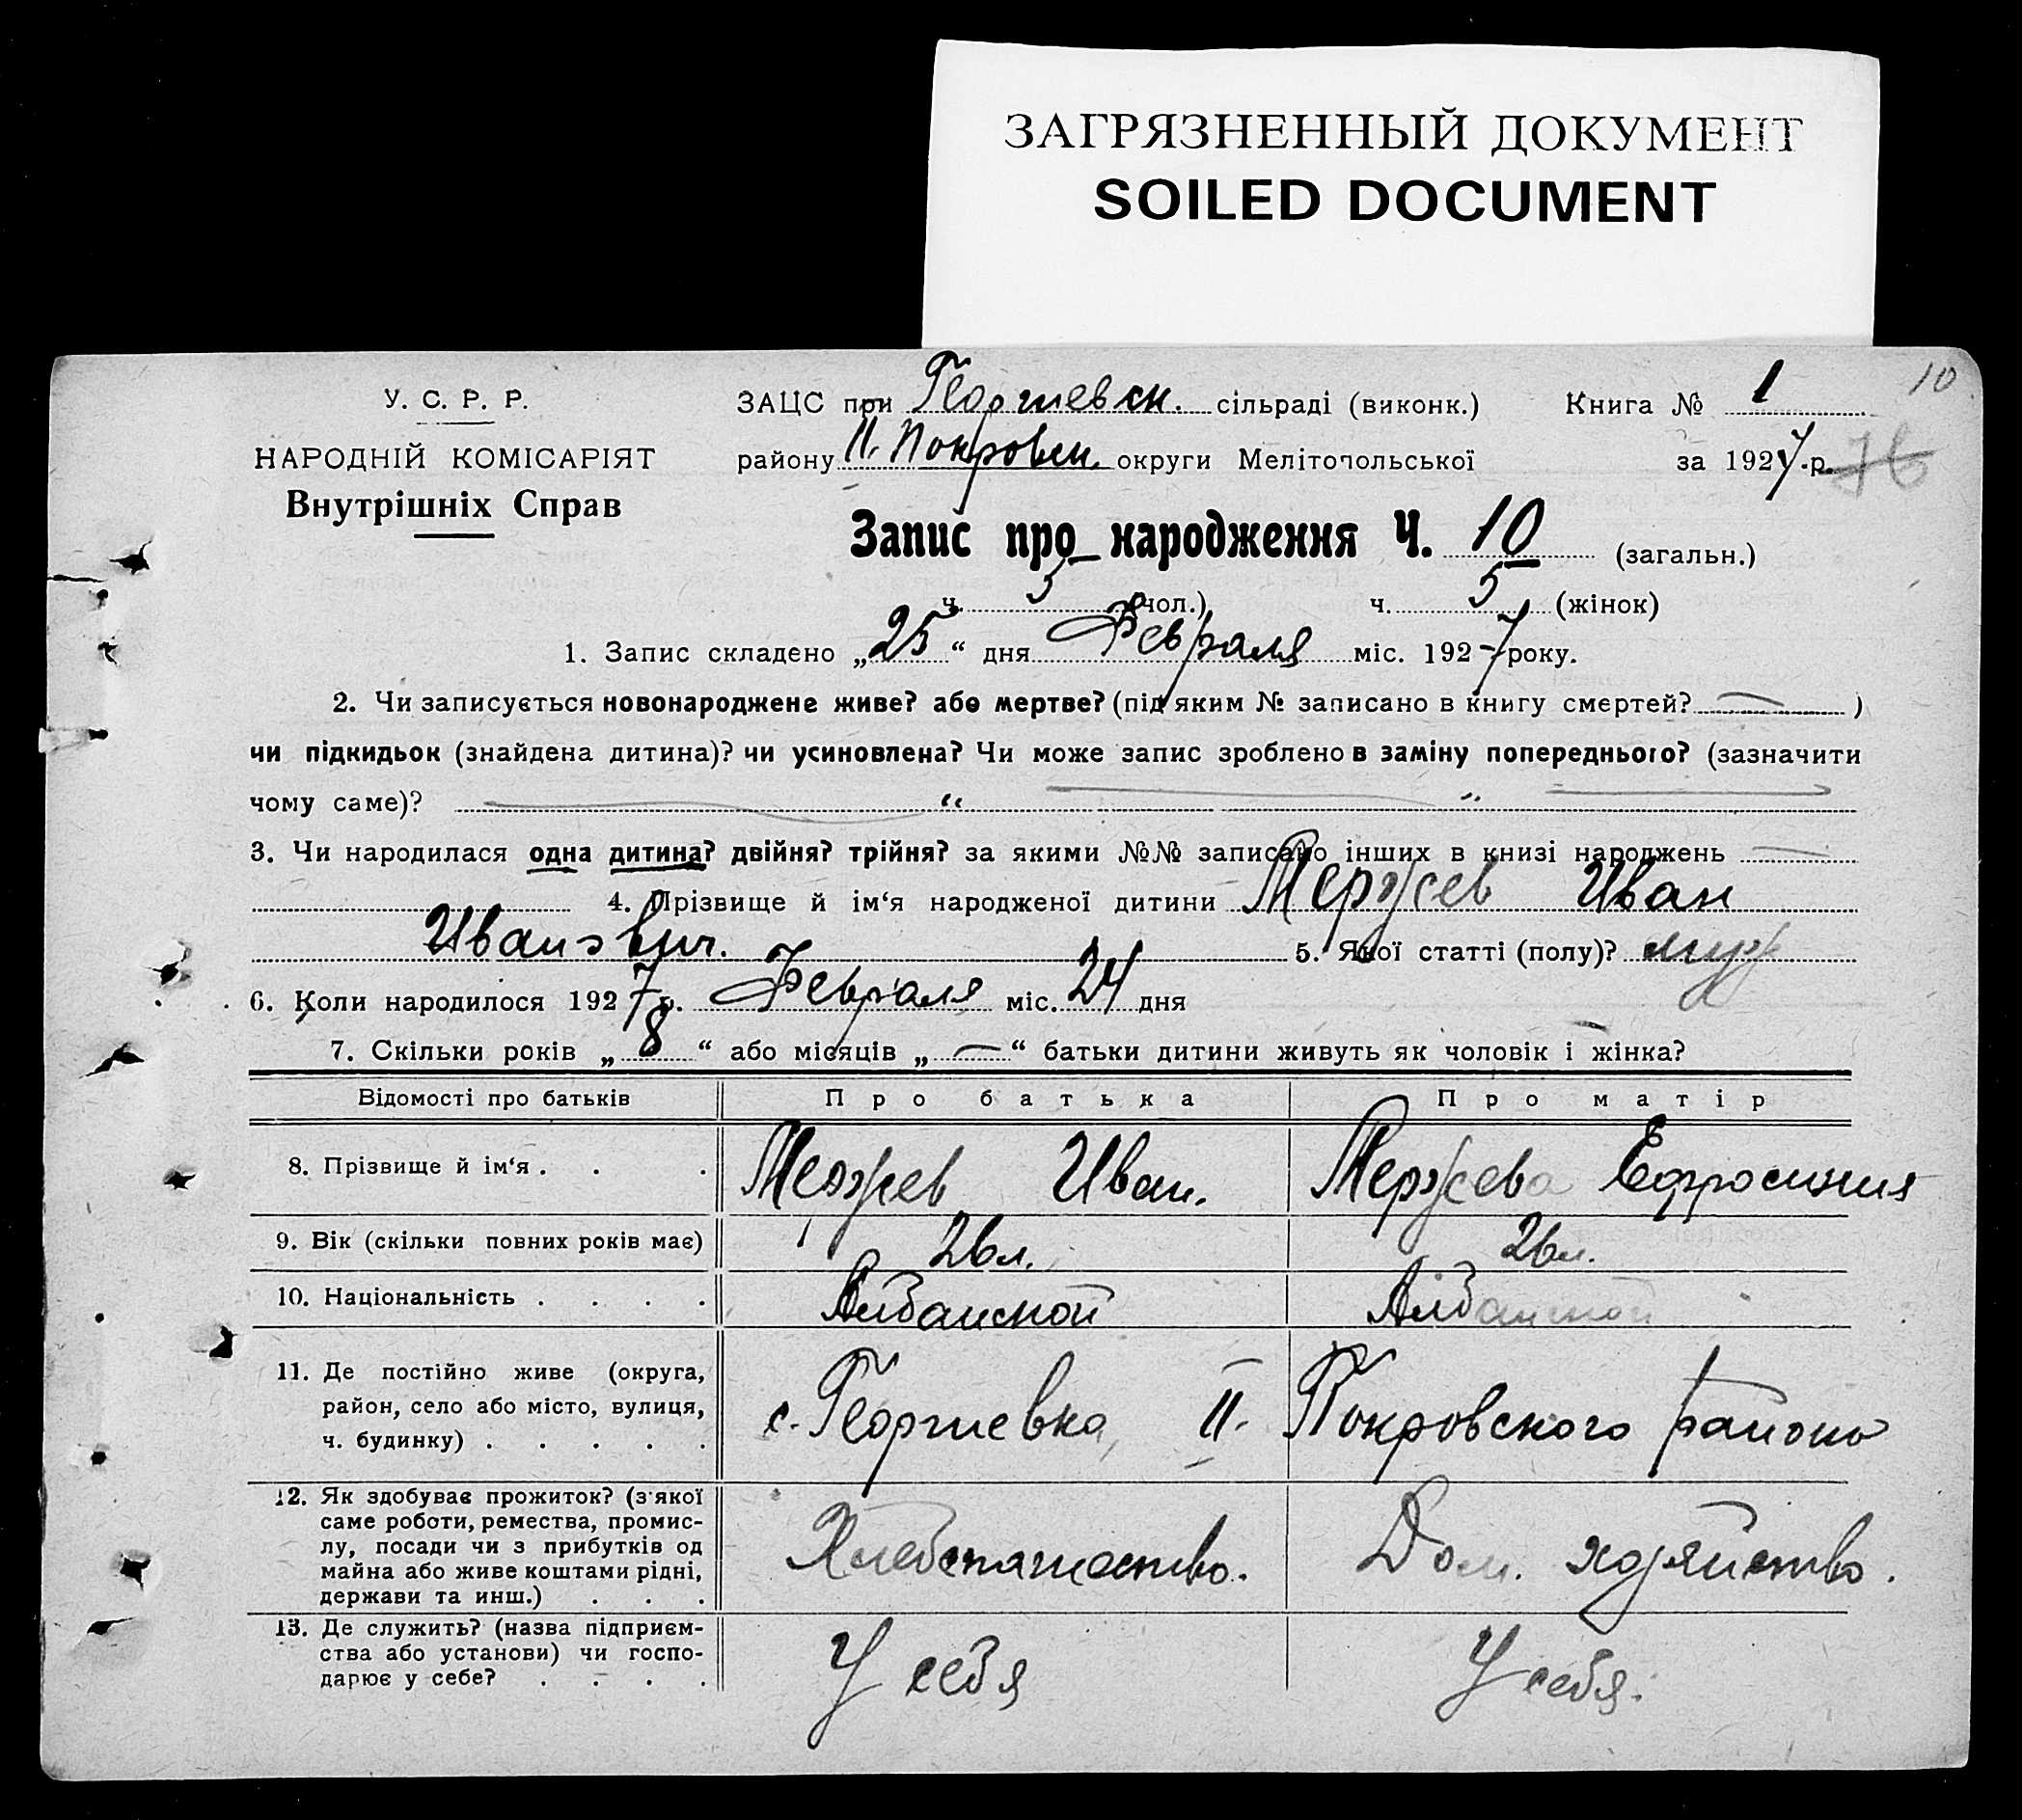 ЗАГРЯЗНЕННЫЙ ДОКУМЕНТ
SOILED DOCUMENT
10
У. С. Р. Р.
НАРОДНІЙ КОМІСАРІЯТ
Внутрішніх Справ
ЗАЦС при Георгиевск. сільраді (виконк.) Книга № 1
району П. Покровск. округи Мелітопольської за 1927 р. 76
Запис про народження Ч. 10 (загальн.)
ч. 5 (чол.) ч. 5 (жінок)
1. Запис складено „25“ дня Февраля міс. 1927 року.
2. Чи записується новонароджене живе? або мертве? (під яким № записано в книгу смертей? — )
чи підкидьок (знайдена дитина)? чи усиновлена? Чи може запис зроблено в заміну попереднього? (зазначити
чому саме)? — “ — “ —
3. Чи народилася одна дитина? двійня? трійня? за якими №№ записано інших в книзі народжень —
4. Прізвище й ім‘я народженої дитини Мержев Иван
Иванович. 5. Якої статті (полу)? муж
6. Коли народилося 1927 р. Февраля міс. 24 дня
7. Скільки років „8“ або місяців „—“ батьки дитини живуть як чоловік і жінка?
Відомості про батьків Про батька Про матір
8. Прізвище й ім‘я . . . Мержев Иван. Мержева Ефросиния
9. Вік (скільки повних років має) 26 л. 26 л.
10. Національність . . . . Албанской Албанской
11. Де постійно живе (округа,
район, село або місто, вулиця,
ч. будинку) . . . . .
с. Георгиевка, П. Покровского района
12. Як здобуває прожиток? (з якої
саме роботи, ремества, промис-
лу, посади чи з прибутків од
майна або живе коштами рідні,
держави та инш.) . . .
Хлебопашество. Дом. хозяйство.
13. Де служить? (назва підприєм-
ства або установи) чи госпо-
дарює у себе? . . . .
У себя У себя.